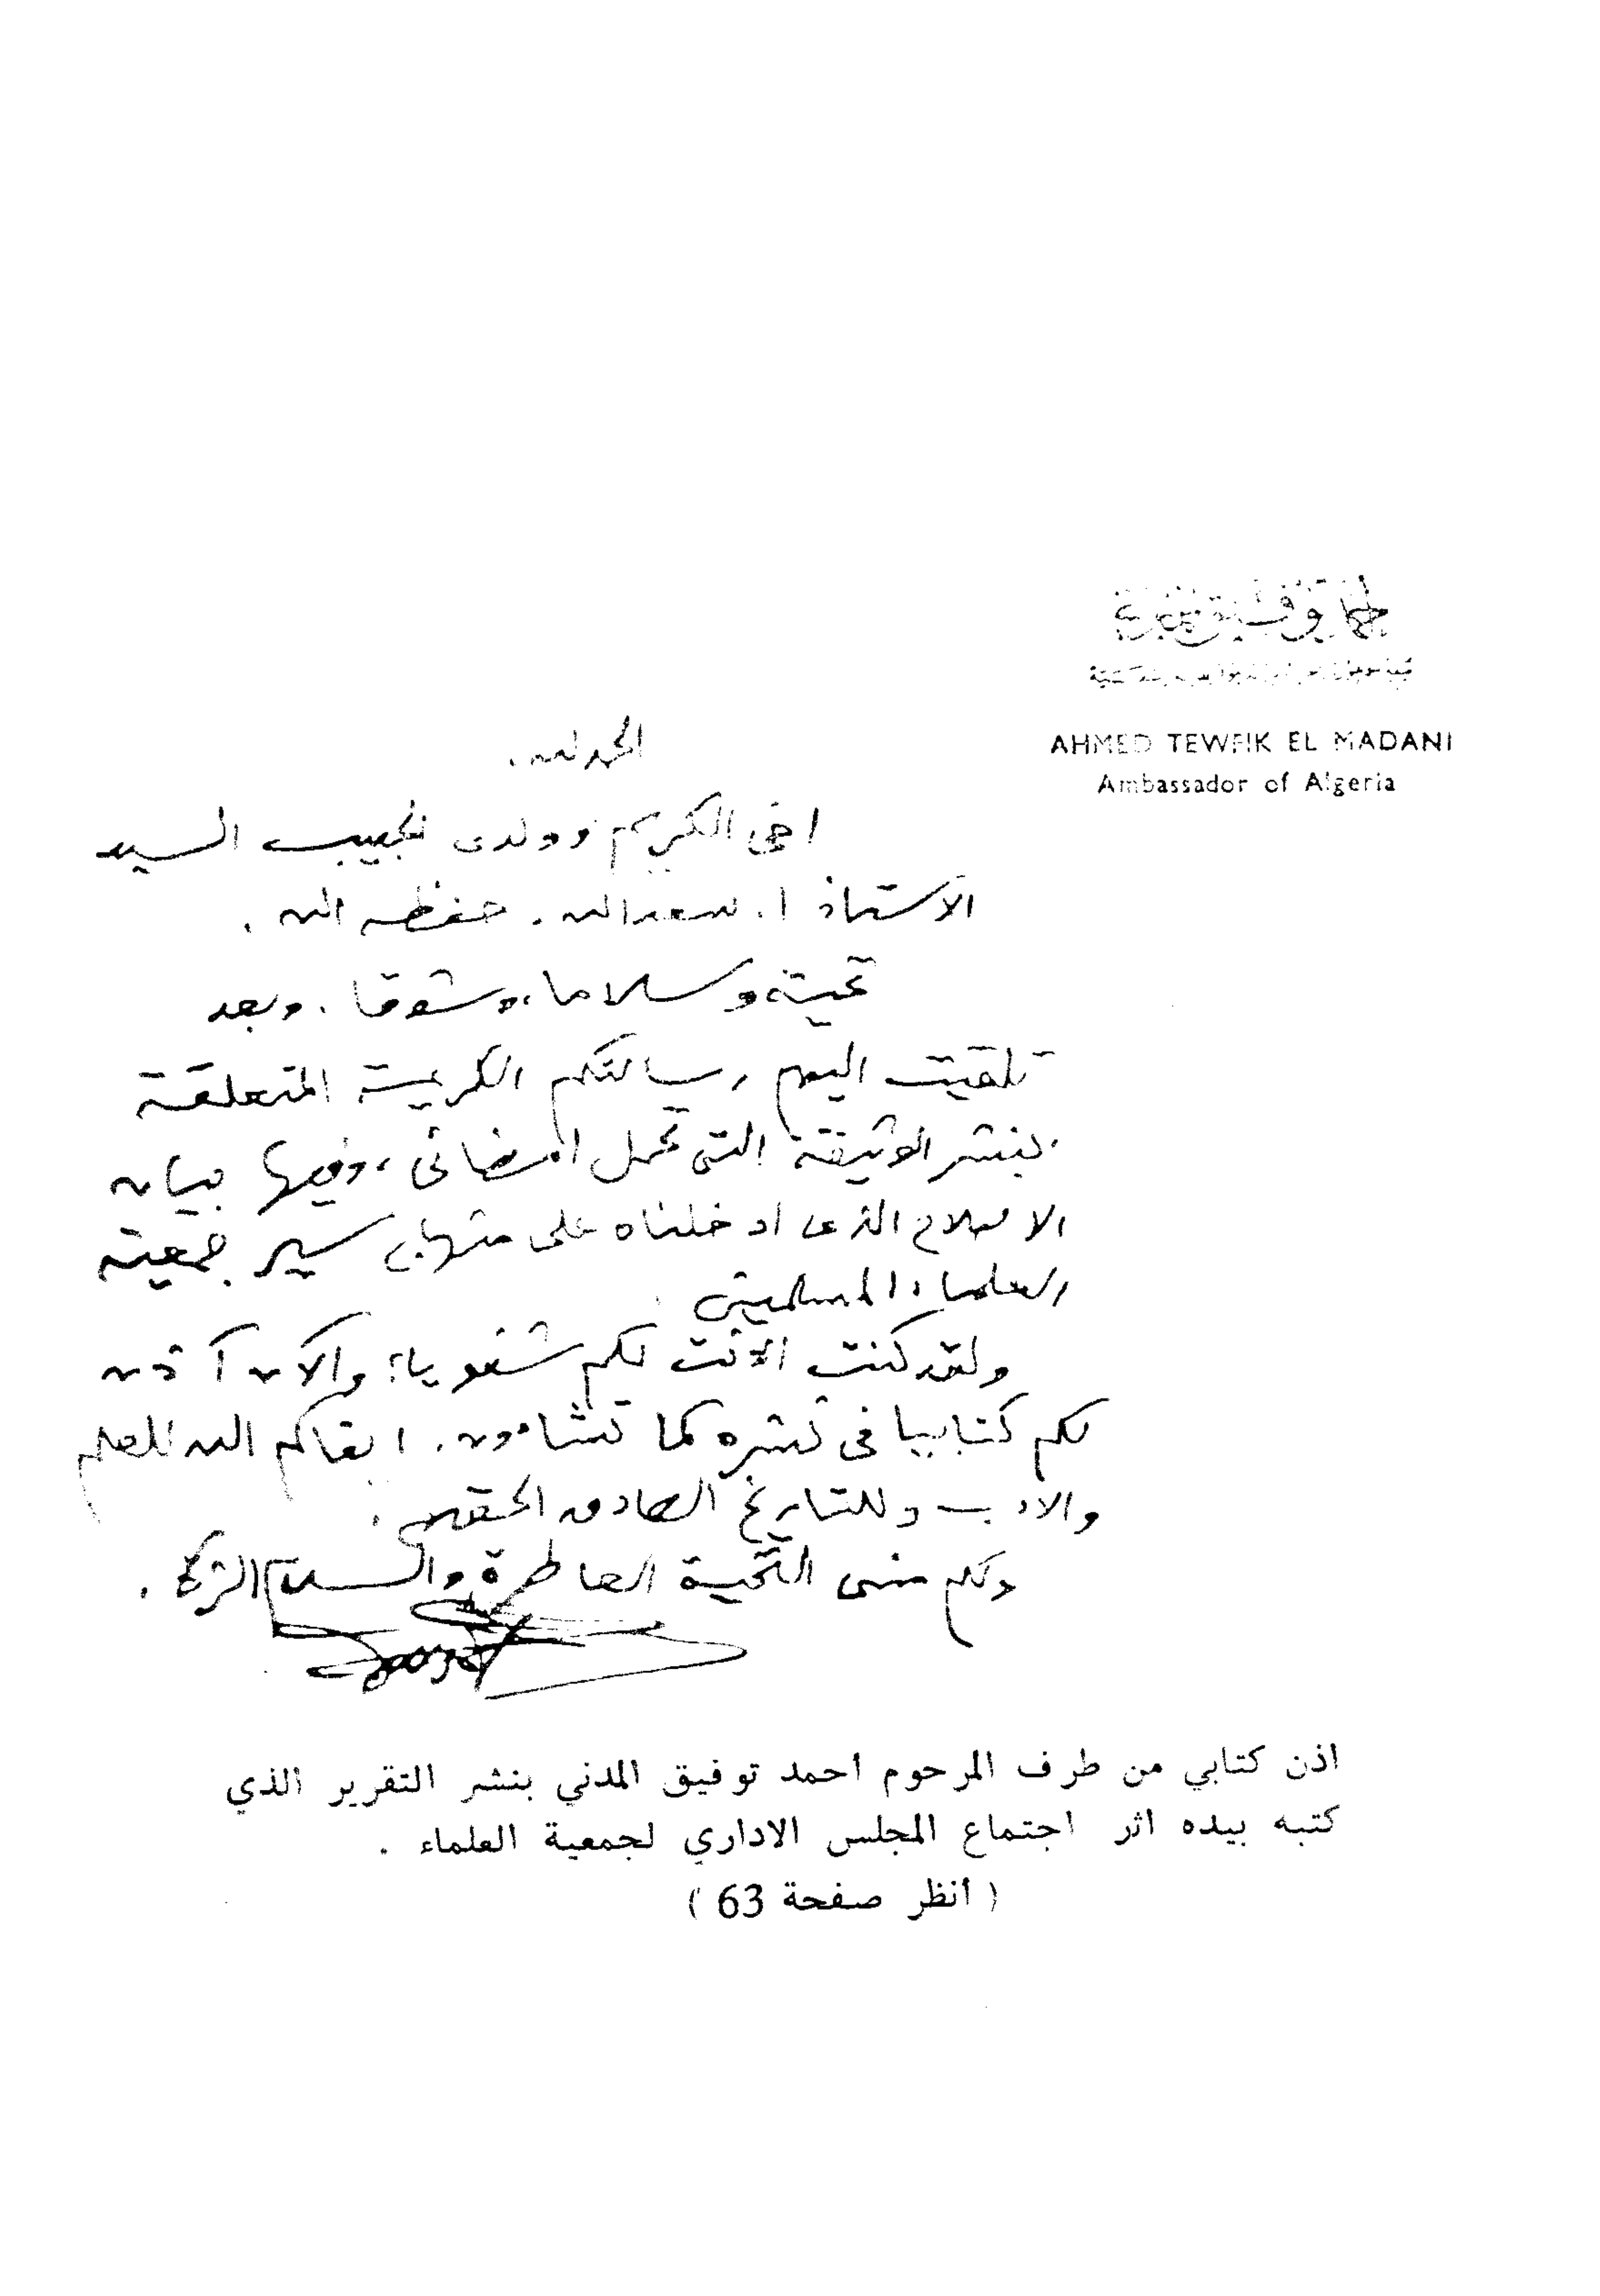 أحمد توفيق المدني
AHMED TEWFIK EL MADANI
Ambassador of Algeria
الحمد لله.
اخى الكريم وولدى نجيب السيد
الأستاذ ا. سعد الله. حفظه الله.
تحية وسلاما، وشوقا. وبعد
تلقيت اليوم رسالتكم الكريمة المتعلقة
بنشر الوثيقة التى تحمل امضائى، وفيها بيان
الاصلاح الذى ادخلناه على منهاج سير جمعية
العلماء المسلمين
ولقد كنت اذنت لكم شفويا؛ والآن آذن
لكم كتابيا فى نشره كما تشاءون. ابقاكم الله للعلم
والادب وللتاريخ الصادق الحقيقى.
ولكم منى التحية العاطرة والسلام الزكى.
اذن كتابي من طرف المرحوم احمد توفيق المدني بنشر التقرير الذي
كتبه بيده اثر اجتماع المجلس الاداري لجمعية العلماء .
( أنظر صفحة 63 )